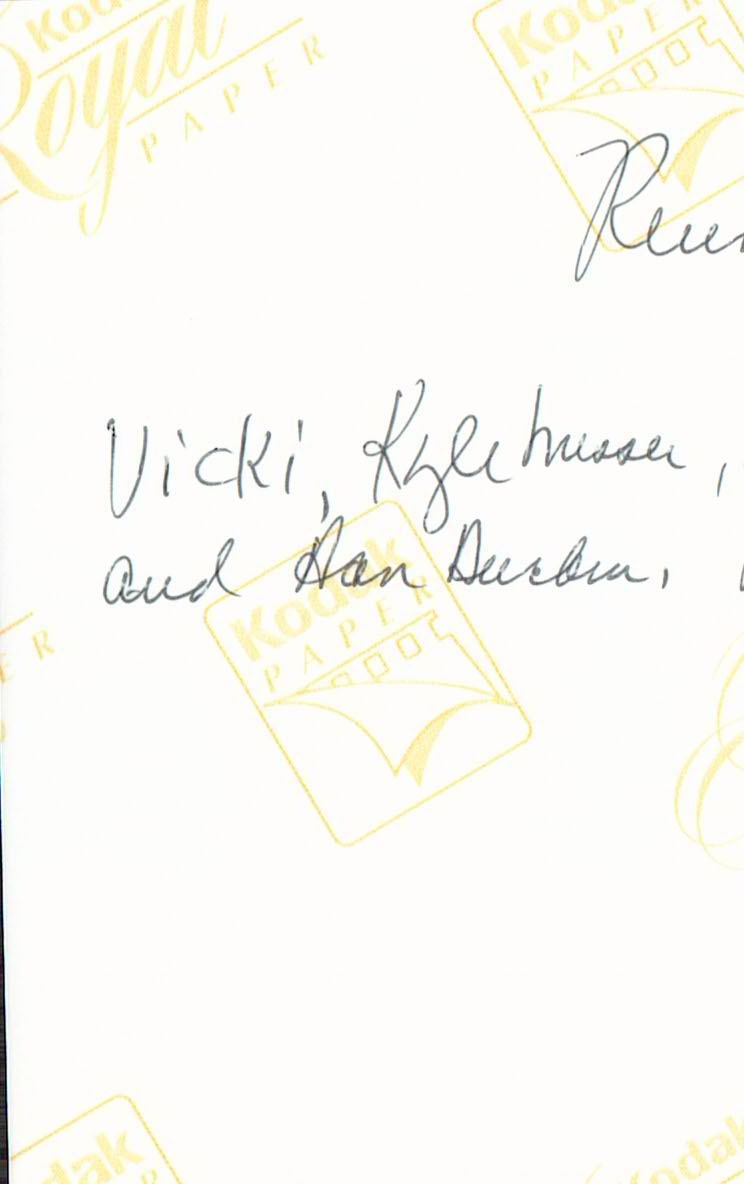 Kodak
Royal
PAPER
Kodak
PAPER
Vicki, Kyle Musser,
and Dan Durbin.
Kodak
PAPER
ER
Kodak
Kodak